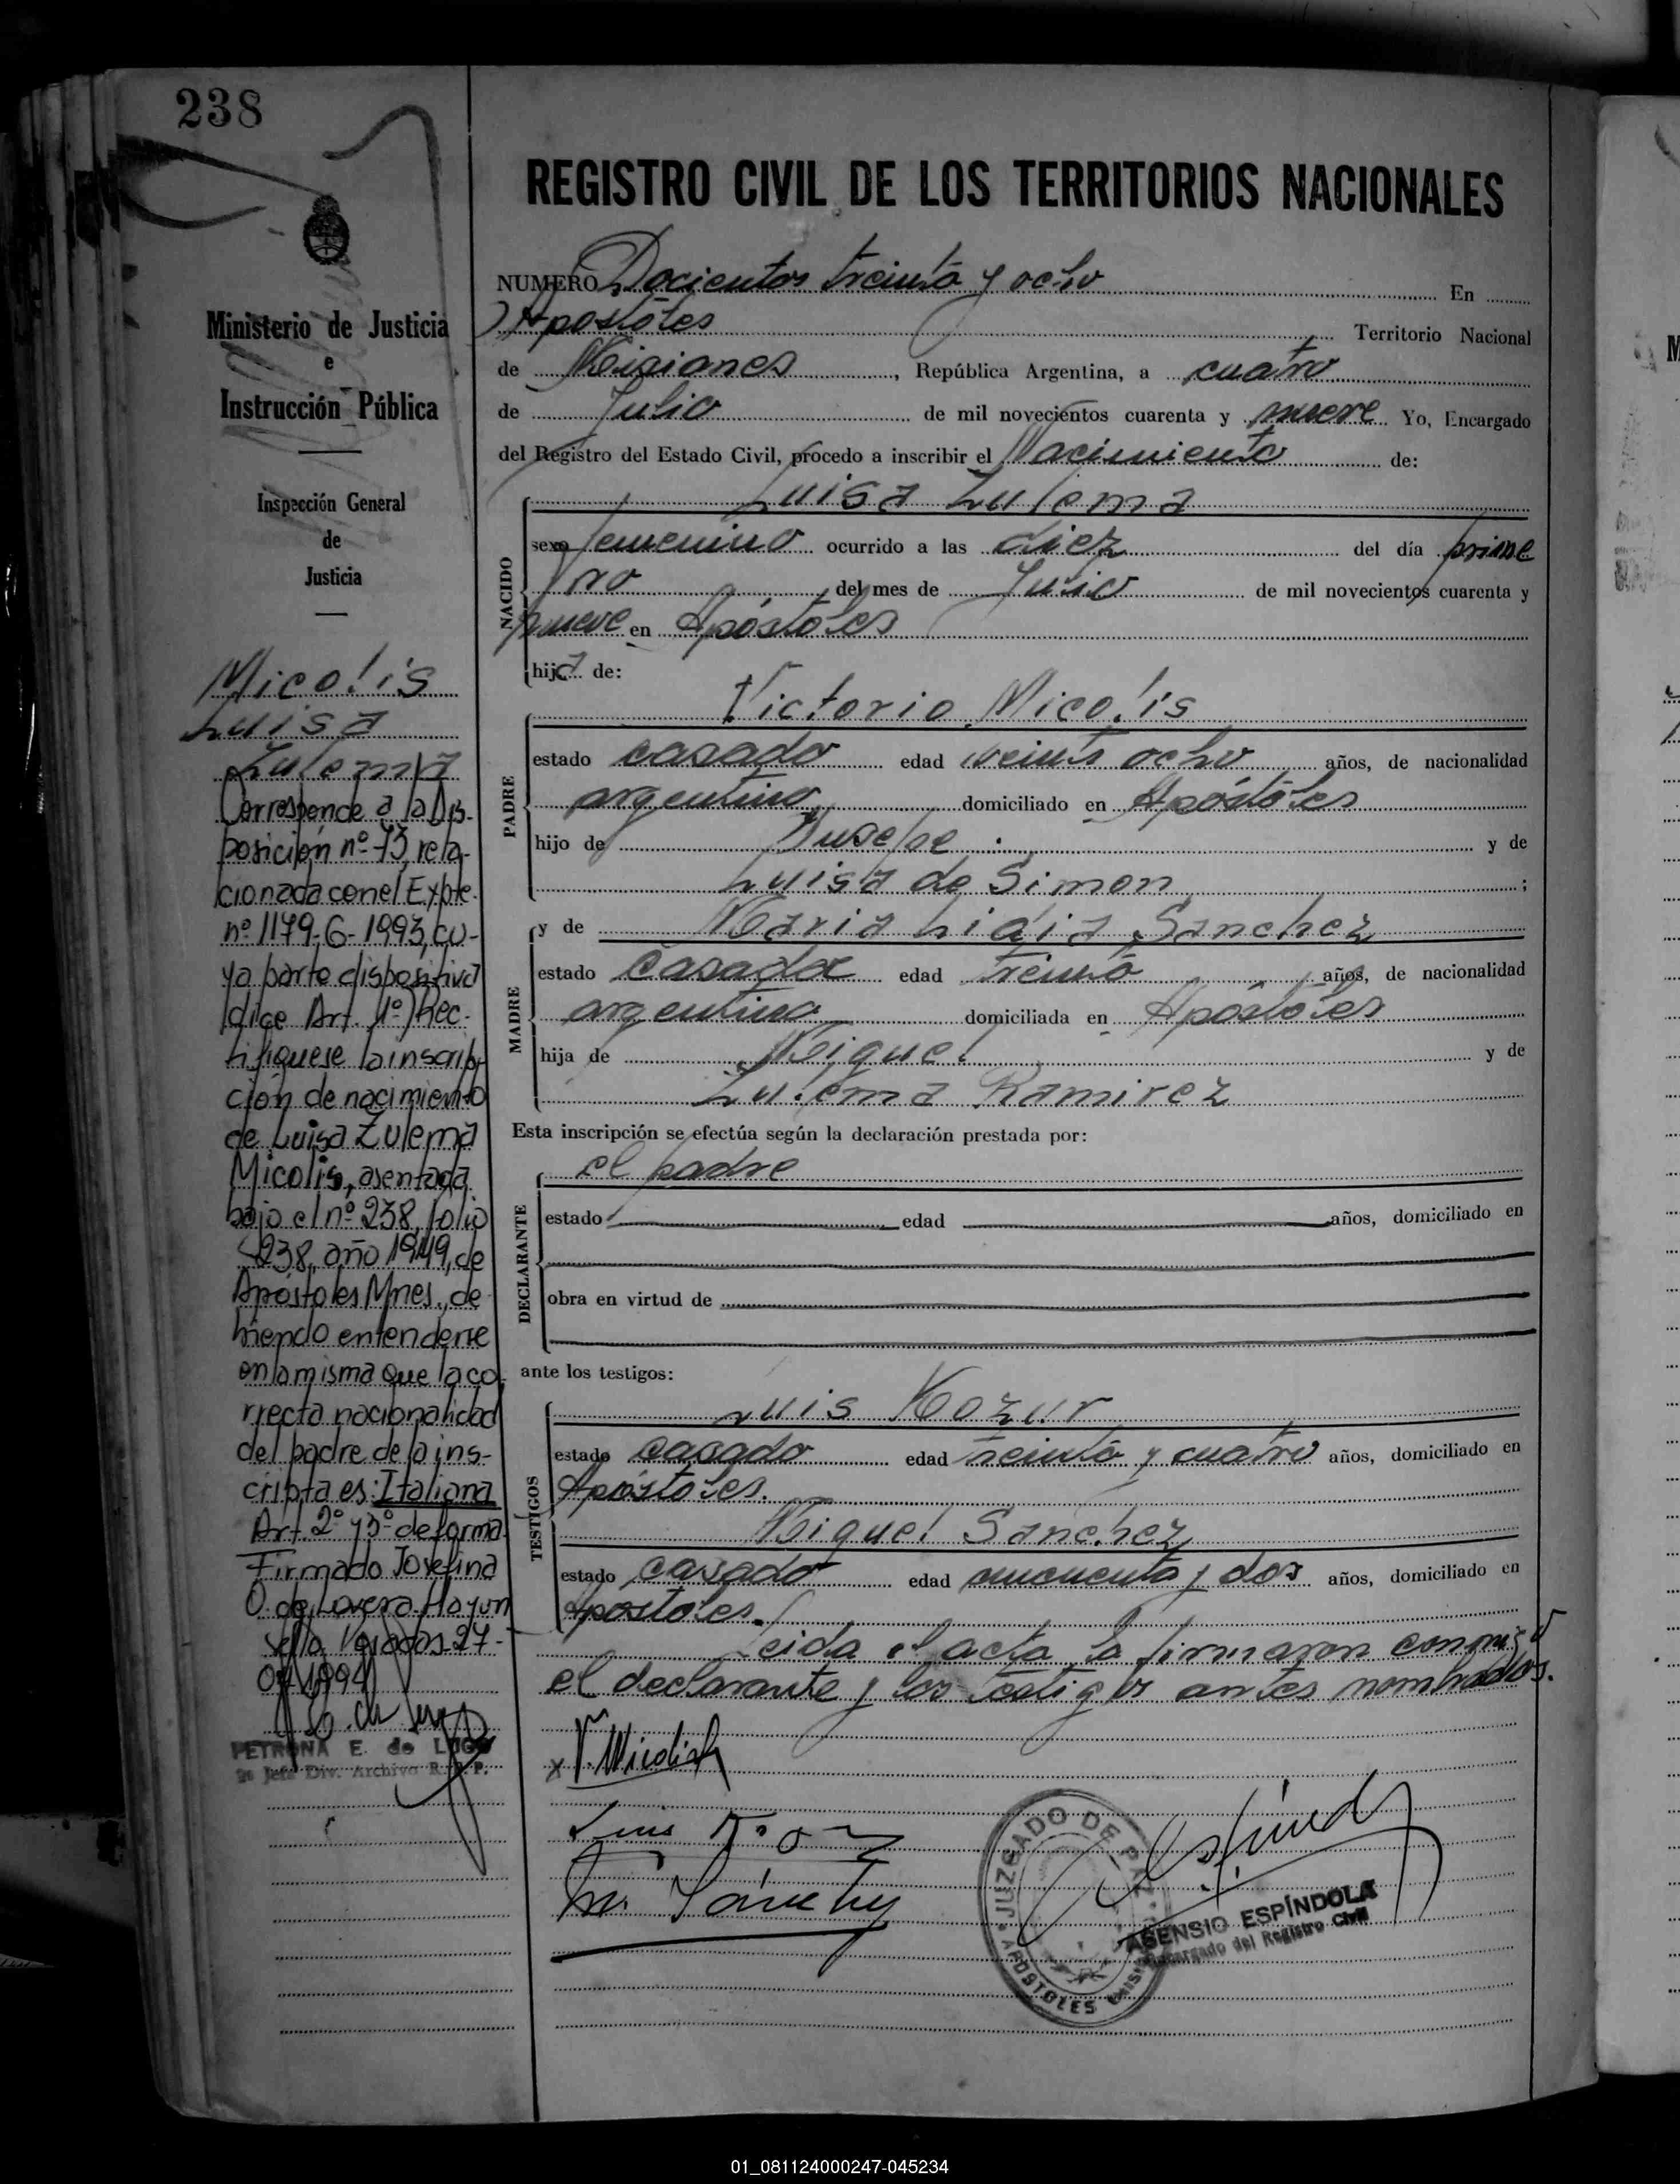 238
Ministerio de Justicia
e
Instrucción Pública
Inspección General
de
Justicia
Micolis
Luisa
Zulema
Corresponde a la Dis-
posición nº 73, rela-
cionada con el Expte.
nº 1179-G-1993, cu-
ya parte dispositiva
dice Art. 1º) Rec-
tifiquese la inscrip-
ción de nacimiento
de Luisa Zulema
Micolis, asentada
bajo el nº 238, folio
238, año 1949, de
Apóstoles Mnes., de
biendo entenderse
en la misma que la co
rrecta nacionalidad
del padre de la ins-
cripta es: Italiana
Art. 2º y 3º de forma.
Firmado Josefina
O. de Lovera
Posadas 27-
1994
PETRONA E. de LUGO
Jefe Div. Archivo R. P.
REGISTRO CIVIL DE LOS TERRITORIOS NACIONALES
NUMERO Docientos treinta y ocho En
Apostoles Territorio Nacional
de Misiones, República Argentina, a cuatro
de Julio de mil novecientos cuarenta y nueve Yo, Encargado
del Registro del Estado Civil, procedo a inscribir el Nacimiento de:
Luisa Zulema
NACIDO
sexo femenino ocurrido a las diez del día prime
ro del mes de Julio de mil novecientos cuarenta y
nueve en Apóstoles
hija de:
Victorio Micolis
PADRE
estado casado edad veinte ocho años, de nacionalidad
argentino domiciliado en Apóstoles
hijo de Yusepe y de
Luisa de Simon;
y de Maria Ligia Sanchez
MADRE
estado casada edad treinta años, de nacionalidad
argentina domiciliada en Apóstoles
hija de Miguel y de
Zulema Ramirez
Esta inscripción se efectúa según la declaración prestada por:
el padre
DECLARANTE
estado edad años, domiciliado en
obra en virtud de
ante los testigos:
Luis Kozur
TESTIGOS
estado casado edad treinta y cuatro años, domiciliado en
Apóstoles.
Miguel Sanchez
estado casado edad cincuenta y dos años, domiciliado en
Apostoles.
Leida el acta, la firmaron conmigo
el declarante y los testigos antes nombrados.
x V. Micolis
Luis
M. Sánchez
JUZGADO DE PAZ
APOSTOLES MISIONES
ASENSIO ESPÍNDOLA
Encargado del Registro Civil
01_081124000247-045234